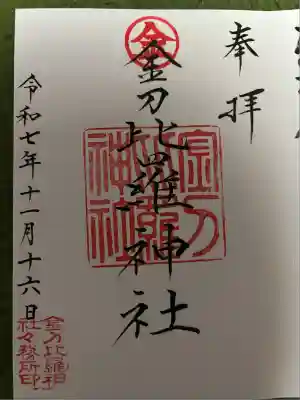 奉拝
金
金刀比羅神社
金刀比羅神社
令和七年十一月十六日
金刀比羅神社々務所印